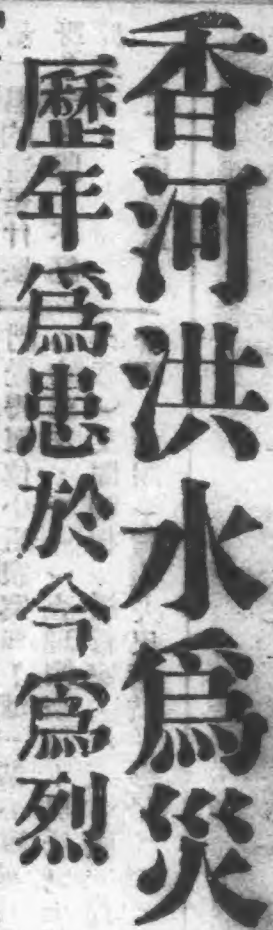 香河洪水爲災
歷年爲患於今爲烈